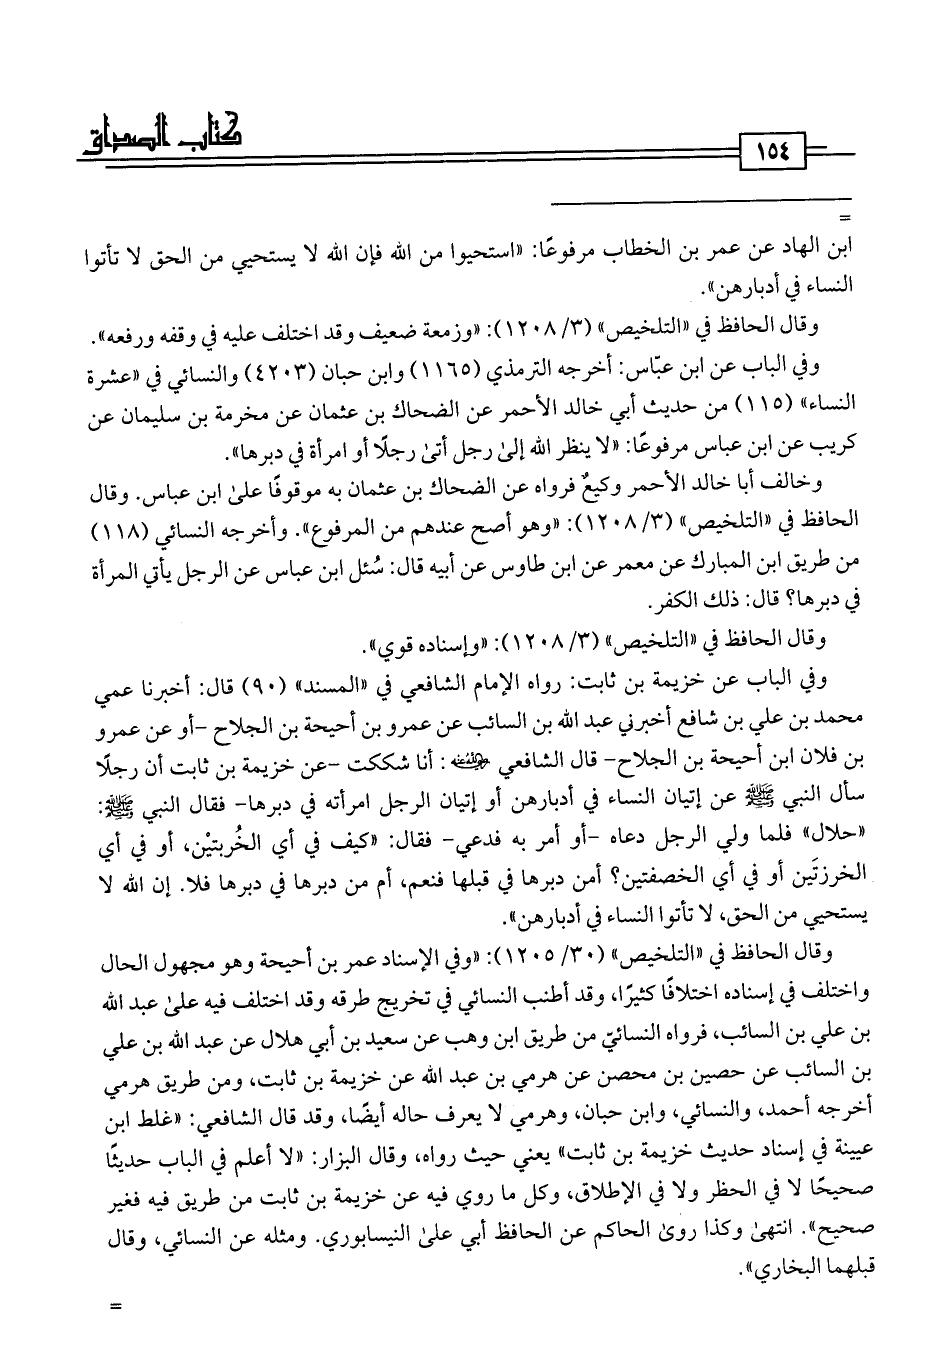 كتاب الصداق
١٥٤
=
ابن الهاد عن عمر بن الخطاب مرفوعًا: «استحيوا من الله فإن الله لا يستحيي من الحق لا تأتوا
النساء في أدبارهن».
وقال الحافظ في «التلخيص» (٣/ ١٢٠٨): «وزمعة ضعيف وقد اختلف عليه في وقفه ورفعه».
وفي الباب عن ابن عبّاس: أخرجه الترمذي (١١٦٥) وابن حبان (٤٢٠٣) والنسائي في «عشرة
النساء» (١١٥) من حديث أبي خالد الأحمر عن الضحاك بن عثمان عن مخرمة بن سليمان عن
كريب عن ابن عباس مرفوعًا: «لا ينظر الله إلىٰ رجل أتىٰ رجلًا أو امرأة في دبرها».
وخالف أبا خالد الأحمر وكيعٌ فرواه عن الضحاك بن عثمان به موقوفًا علىٰ ابن عباس. وقال
الحافظ في «التلخيص» (٣/ ١٢٠٨): «وهو أصح عندهم من المرفوع». وأخرجه النسائي (١١٨)
من طريق ابن المبارك عن معمر عن ابن طاوس عن أبيه قال: سُئل ابن عباس عن الرجل يأتي المرأة
في دبرها؟ قال: ذلك الكفر.
وقال الحافظ في «التلخيص» (٣/ ١٢٠٨): «وإسناده قوي».
وفي الباب عن خزيمة بن ثابت: رواه الإمام الشافعي في «المسند» (٩٠) قال: أخبرنا عمي
محمد بن علي بن شافع أخبرني عبد الله بن السائب عن عمرو بن أحيحة بن الجلاح -أو عن عمرو
بن فلان ابن أحيحة بن الجلاح- قال الشافعي رضي الله عنه: أنا شككت -عن خزيمة بن ثابت أن رجلًا
سأل النبي ﷺ عن إتيان النساء في أدبارهن أو إتيان الرجل امرأته في دبرها- فقال النبي ﷺ:
«حلال» فلما ولي الرجل دعاه -أو أمر به فدعي- فقال: «كيف في أي الخُربتيْن، أو في أي
الخرزتَين أو في أي الخصفتين؟ أمن دبرها في قبلها فنعم، أم من دبرها في دبرها فلا. إن الله لا
يستحيي من الحق، لا تأتوا النساء في أدبارهن».
وقال الحافظ في «التلخيص» (٣٠/ ١٢٠٥): «وفي الإسناد عمر بن أحيحة وهو مجهول الحال
واختلف في إسناده اختلافًا كثيرًا، وقد أطنب النسائي في تخريج طرقه وقد اختلف فيه علىٰ عبد الله
بن علي بن السائب، فرواه النسائيّ من طريق ابن وهب عن سعيد بن أبي هلال عن عبد الله بن علي
بن السائب عن حصين بن محصن عن هرمي بن عبد الله عن خزيمة بن ثابت، ومن طريق هرمي
أخرجه أحمد، والنسائي، وابن حبان، وهرمي لا يعرف حاله أيضًا، وقد قال الشافعي: «غلط ابن
عيينة في إسناد حديث خزيمة بن ثابت» يعني حيث رواه، وقال البزار: «لا أعلم في الباب حديثًا
صحيحًا لا في الحظر ولا في الإطلاق، وكل ما روي فيه عن خزيمة بن ثابت من طريق فيه فغير
صحيح». انتهىٰ وكذا روىٰ الحاكم عن الحافظ أبي علىٰ النيسابوري. ومثله عن النسائي، وقال
قبلهما البخاري».
=